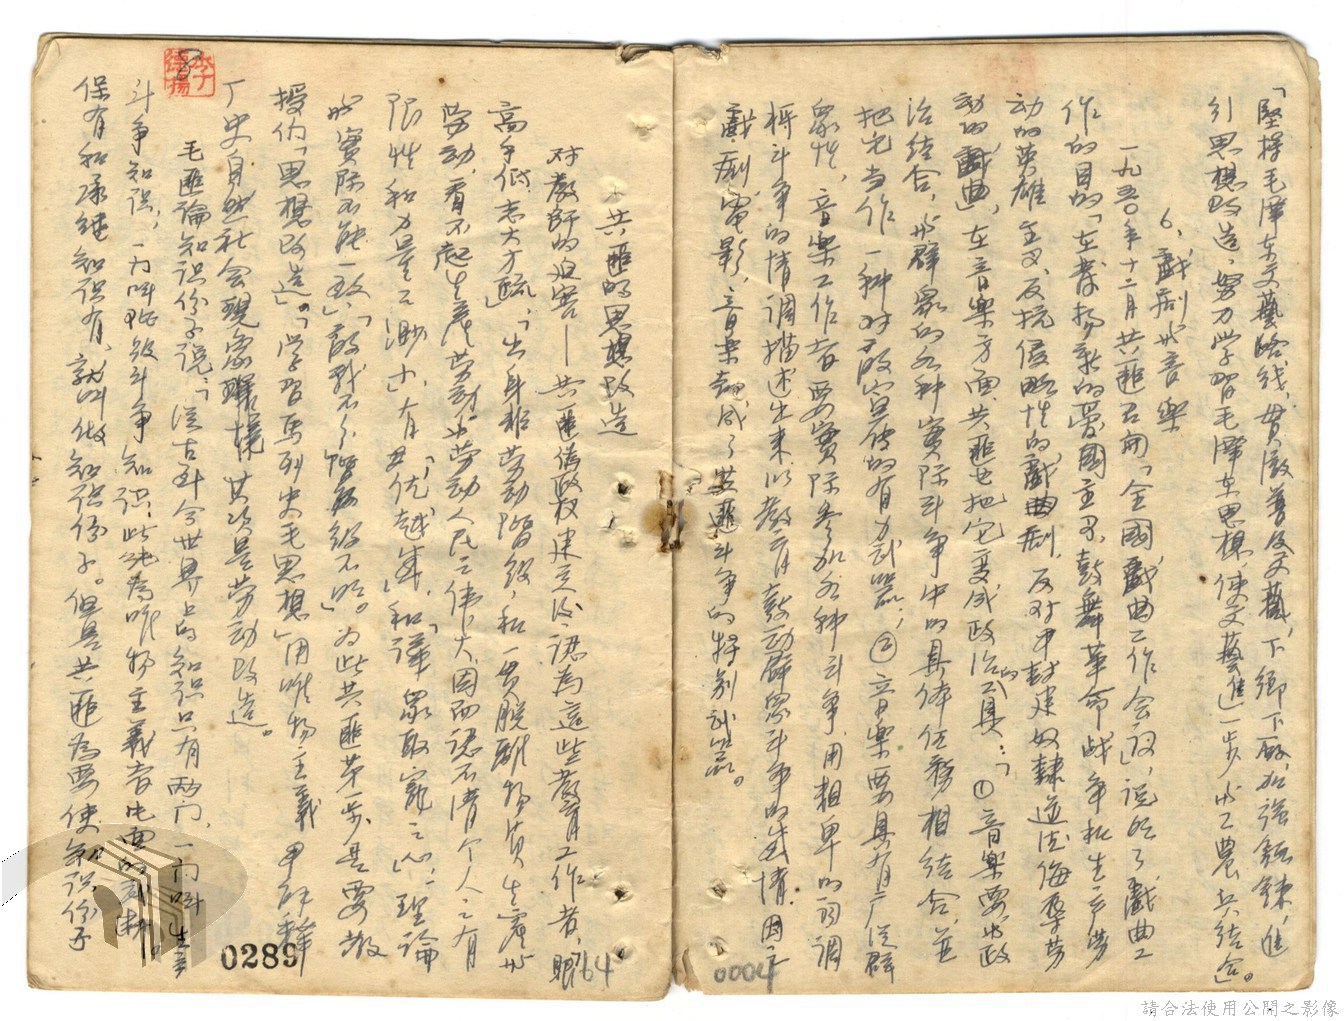 「堅持毛澤东文藝路线，貫澈普及文藝，下鄉下厰，加強鍛鍊，進
引思想改造，努力学習毛澤东思想，使文藝進一步與工農兵結合」。
6、戲剧與音樂
一九五〇年十二月共匪召開「全國戲曲工作会议」，说明了戲曲工
作的目的「在發揚新的愛國主义，鼓舞革命战争和生产劳
动的英雄主义，反抗侵略性的戲曲剧，反对封建奴隸道德侮辱劳
动的戲曲」，在音樂方面，共匪也把它变成政治的工具：「①音樂要與政
治結合，與群眾的各种實际斗争中的具体任務相結合，並
把它当作一种对敌宣傳的有力武器；②音樂要具有广泛群
眾性，音樂工作者要實际参加各种斗争，用粗卑的詞調
将斗争的情调描述出来以教育鼓动群眾斗争的热情，因于
戲剧，電影，音樂都成了共匪斗争的特別武器。
共匪的思想改造
对教師的迫害——共匪偽政权建立後，認為這些教育工作者，「眼
高手低，志大才疏」，「出身非劳动階級，和一貫脱離物質生產與
劳动，看不起生產劳动與劳动人民之偉大，因而認不清个人之有
限性和力量之渺小」，有其「优越感」和「譁眾取寵之心」，「理論
與實际不能一致」「敵我不分階級不明」。为此共匪第一步是要教
授们「思想改造」。「学習馬列史毛思想」用唯物主義 甲解释
了史自然社会現象 其次是劳动改造。
毛匪論知识份子说：「從古到今世界上的知识只有两门，一门叫生产
斗争知识，一门叫階级斗争知识；此
保有和承继知识有，就叫做知识份子。但是共匪為要使知识份子
0289
64
0004
8
李子
揚
請合法使用公開之影像